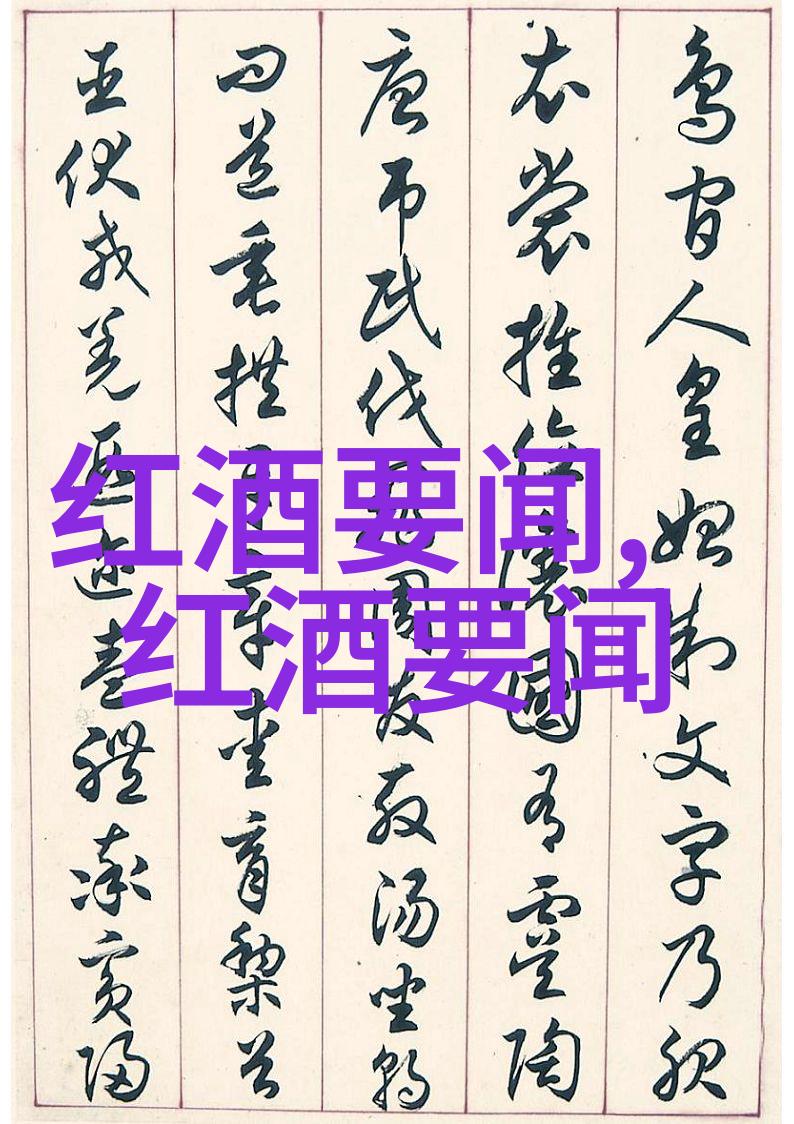 鳥官人皇始制文字乃服
衣裳推位讓國有虞陶
唐吊民伐罪周發殷湯坐朝
問道垂拱平章愛育黎首
臣伏戎羌遐邇壹體率賓歸
红酒要闻,
红酒要闻